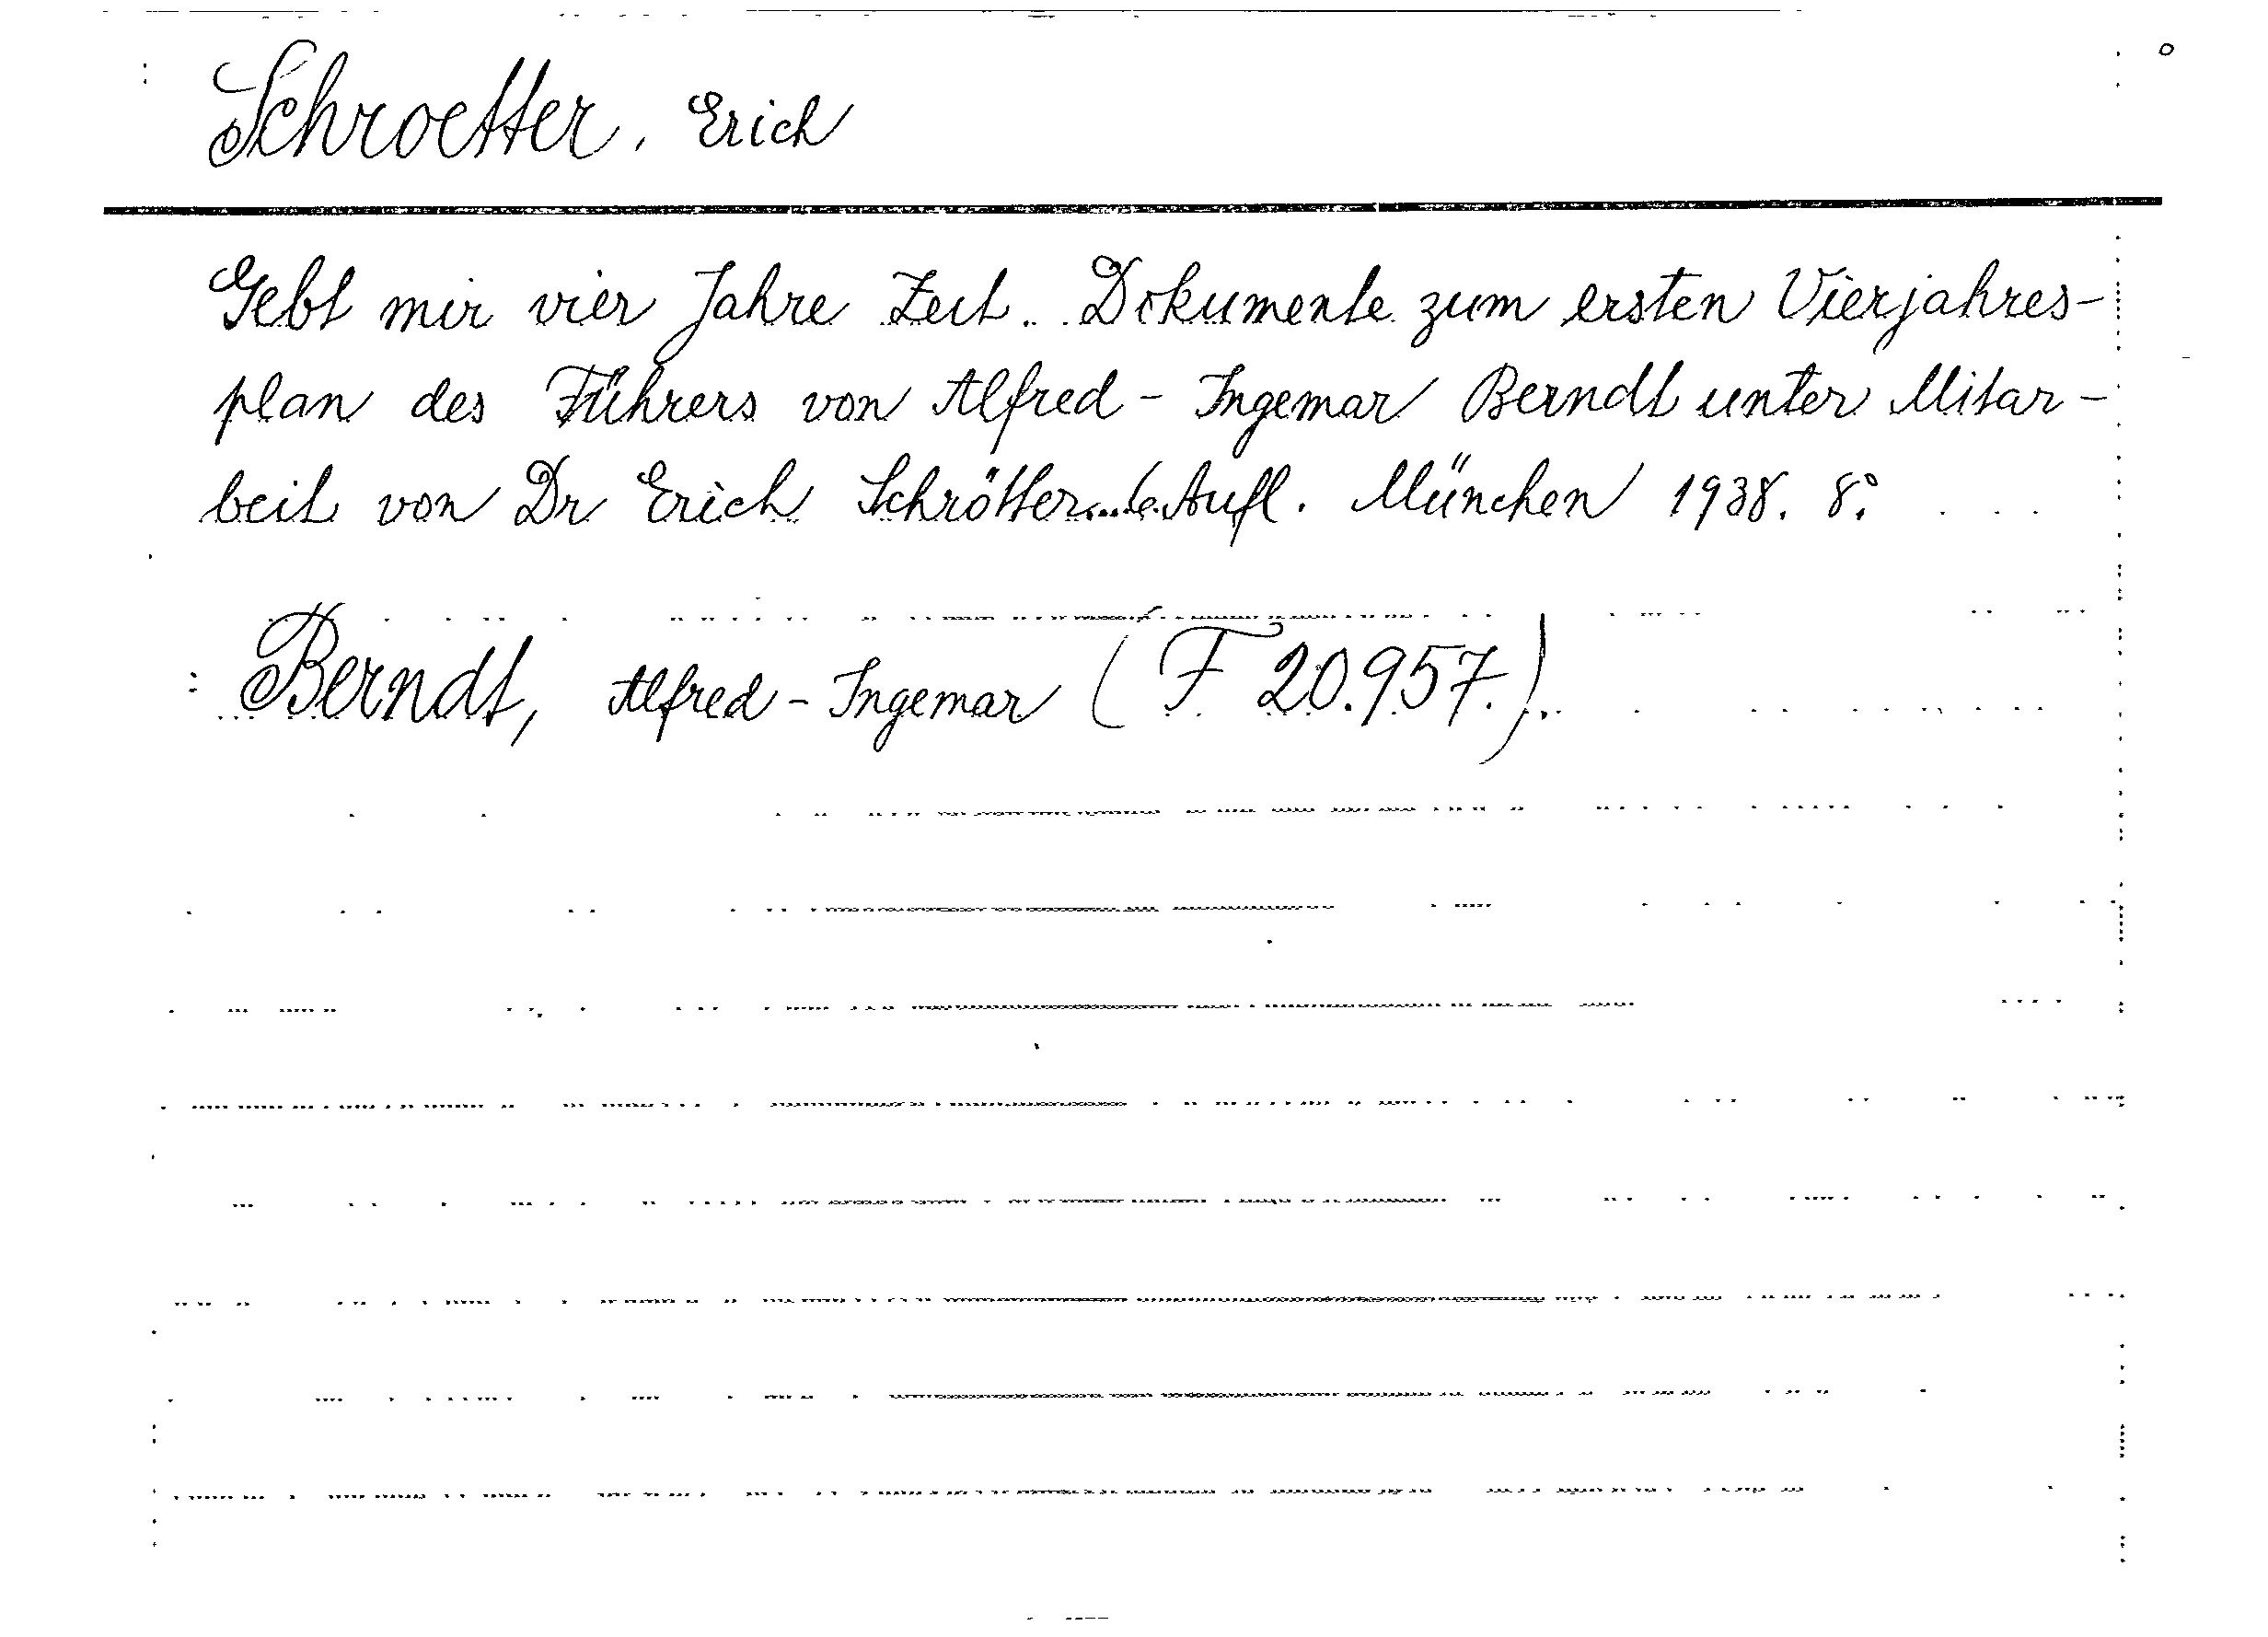 Schroetter, Erich
Gebt mir vier Jahre Zeit. Dokumente zum ersten Vierjahres-
plan des Führers von Alfred-Ingemar Berndt unter Mitar-
beit von Dr Erich Schrötter. 6. Aufl. München 1938. 8°.
Berndt, Alfred-Ingemar (F 20.957.).